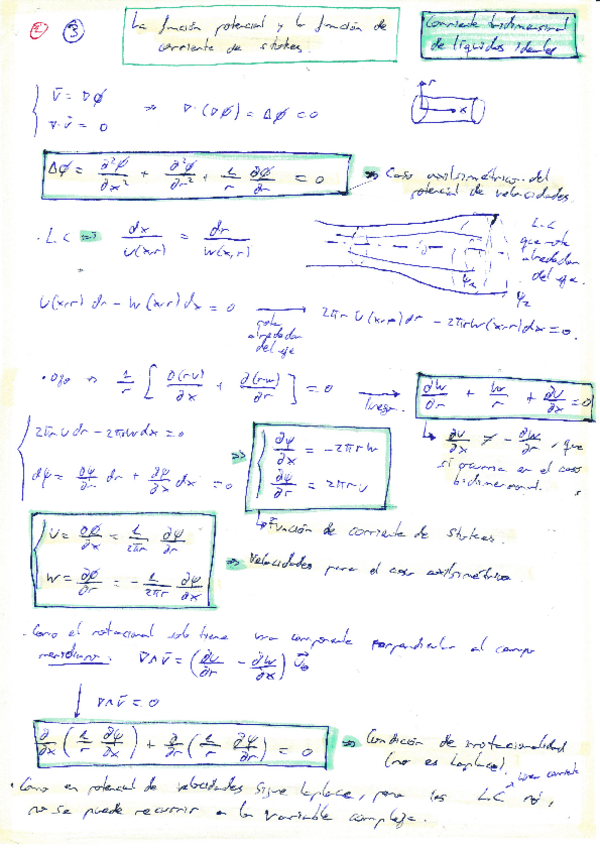 2 3
La función potencial y la función de
corriente de stokes.
Corriente bidimensional
de líquidos ideales
v̄ = ∇φ
∇·v̄ = 0
⇒ ∇·(∇φ) = Δφ = 0
r
x
Δφ = ∂²φ/∂x² + ∂²φ/∂r² + 1/r ∂φ/∂r = 0
⇒ Caso axilsimétrico del
potencial de velocidades.
· L.C ⇒ dx/U(x,r) = dr/W(x,r)
L.C
que rota
alrededor
del eje.
ψ₂
U(x,r) dr − W(x,r) dx = 0 → 2πr U(x,r) dr − 2πr W(x,r) dx = 0.
rota
alrededor
del eje
· Ojo ⇒ 1/r [ ∂(rU)/∂x + ∂(rW)/∂r ] = 0 → ∂W/∂r + W/r + ∂U/∂x = 0
luego.
↳ ∂U/∂x ≠ −∂W/∂r, que
sí ocurría en el caso
bidimensional.
2πrU dr − 2πrW dx = 0
dψ = ∂ψ/∂r dr + ∂ψ/∂x dx = 0
⇒ ∂ψ/∂x = −2πrW
∂ψ/∂r = 2πrU
↳ Función de corriente de Stokes.
U = ∂φ/∂x = 1/2πr ∂ψ/∂r
W = ∂φ/∂r = −1/2πr ∂ψ/∂x
⇒ Velocidades para el caso axilsimétrico
· Como el rotacional solo tiene una componente perpendicular al campo
meridiano. ∇∧v̄ = (∂U/∂r − ∂W/∂x) U⃗θ
↓ ∇∧v̄ = 0
∂/∂x (1/r ∂ψ/∂x) + ∂/∂r (1/r ∂ψ/∂r) = 0
⇒ Condición de irrotacionalidad
(no es Laplace).
· Como en potencial de velocidades sigue Laplace, pero las L.C no,
línea corriente
no se puede recurrir a la variable compleja.